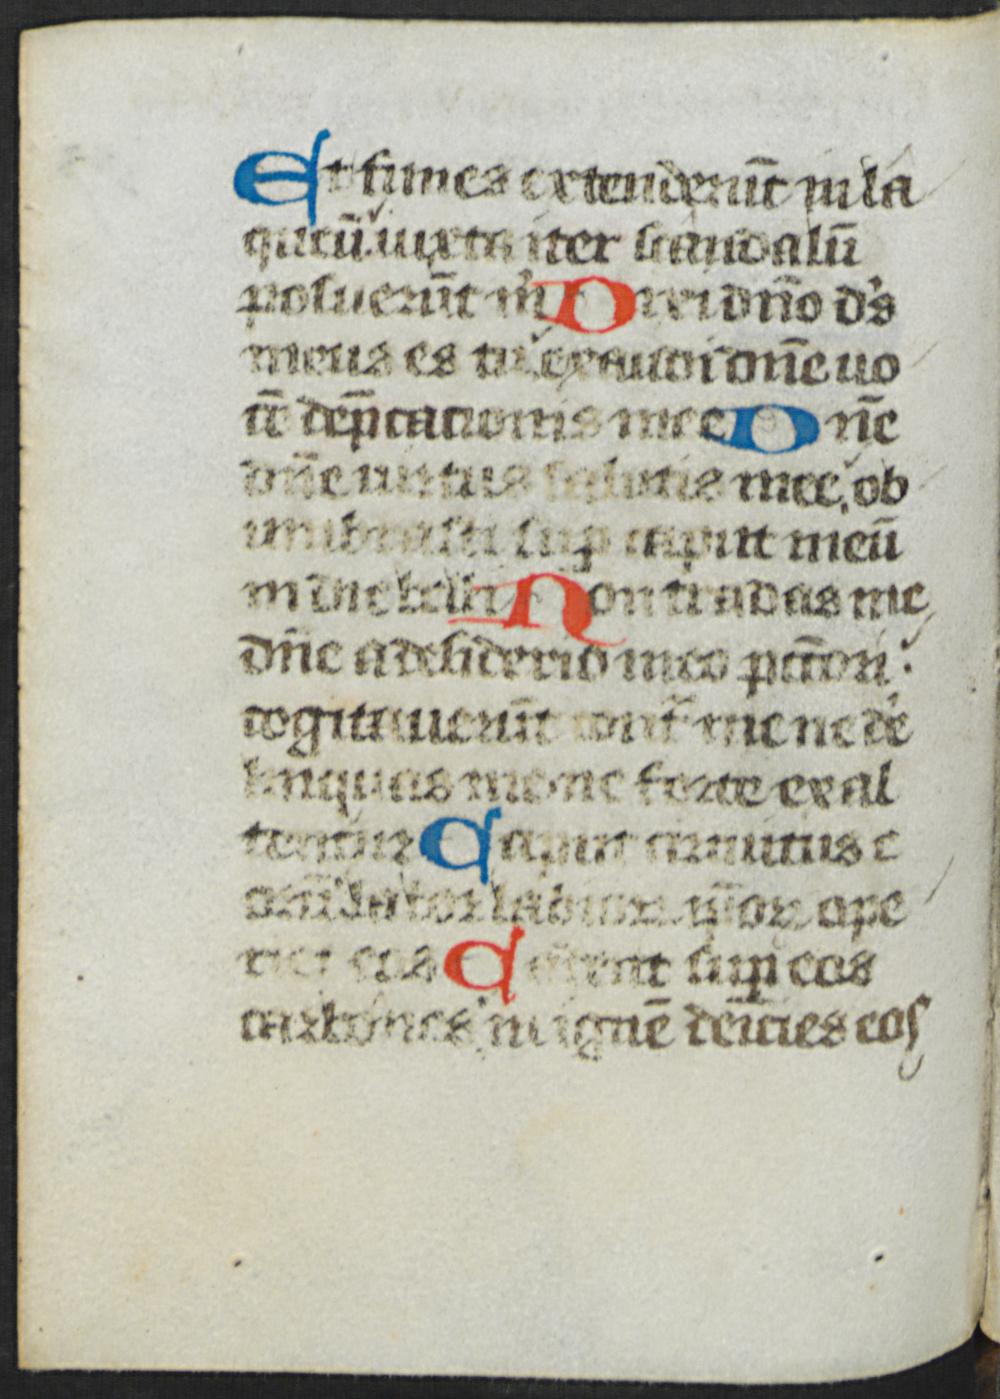 Et funes extenderūt in la
queū iuxta iter scandalū
posuerūt m̄ Dixi dn̄o d's
meus es tu exaudi dn̄e uo
cē dep̄cationis mee Dn̄e
dn̄e uirtus salutis mee, ob
umbrasti sup caput meū
in die belli Non tradas me
dn̄e a desiderio meo pc̄cori:
cogitauerūt cont̄ me ne de
linquas me ne forte exal
tentur Caput circuitus e
labioꝝ ip̄oꝝ ope
riet eos Cadent sup eos
carbones in ignē deicies eos